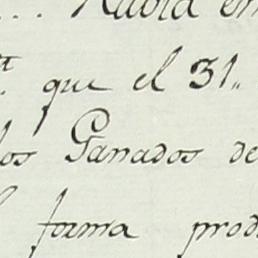 ... Rabia en
que el 31„
los Ganados de
forma prod